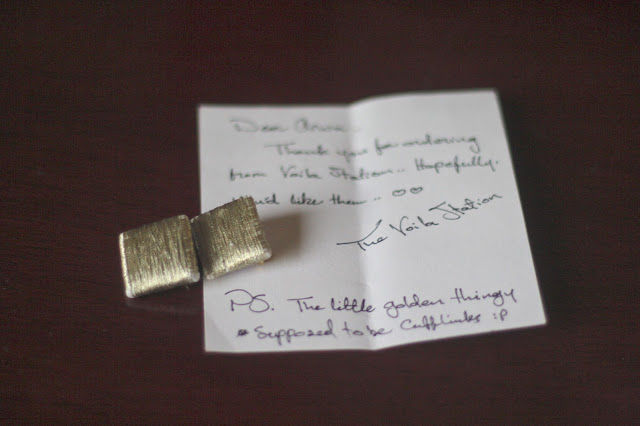 Dear
Thank you for ordering
from Voila Station.. Hopefully.
like them.. ♡♡
The Voila Station
PS. The little golden thingy
Supposed to be Cufflinks :P